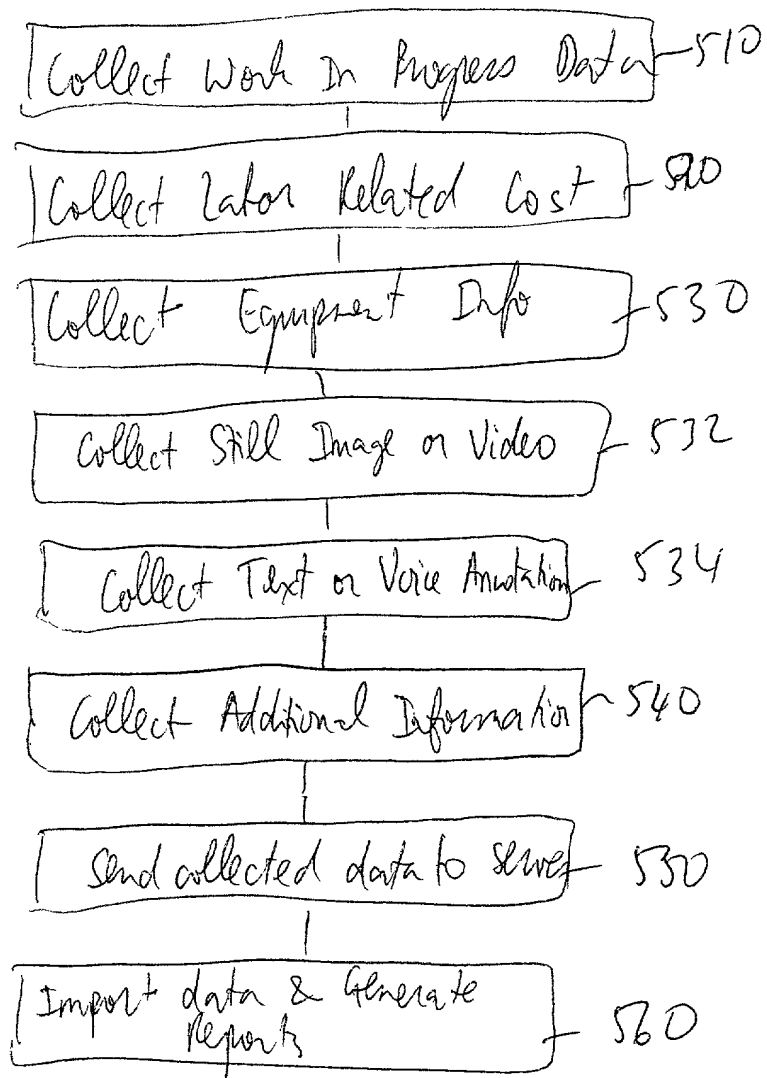 Collect Work In Progress Data 510
Collect Labor Related Cost 520
Collect Equipment Info 530
Collect Still Image or Video 532
Collect Text or Voice Annotation 534
Collect Additional Information 540
Send collected data to server 550
Import data & Generate
Reports 560